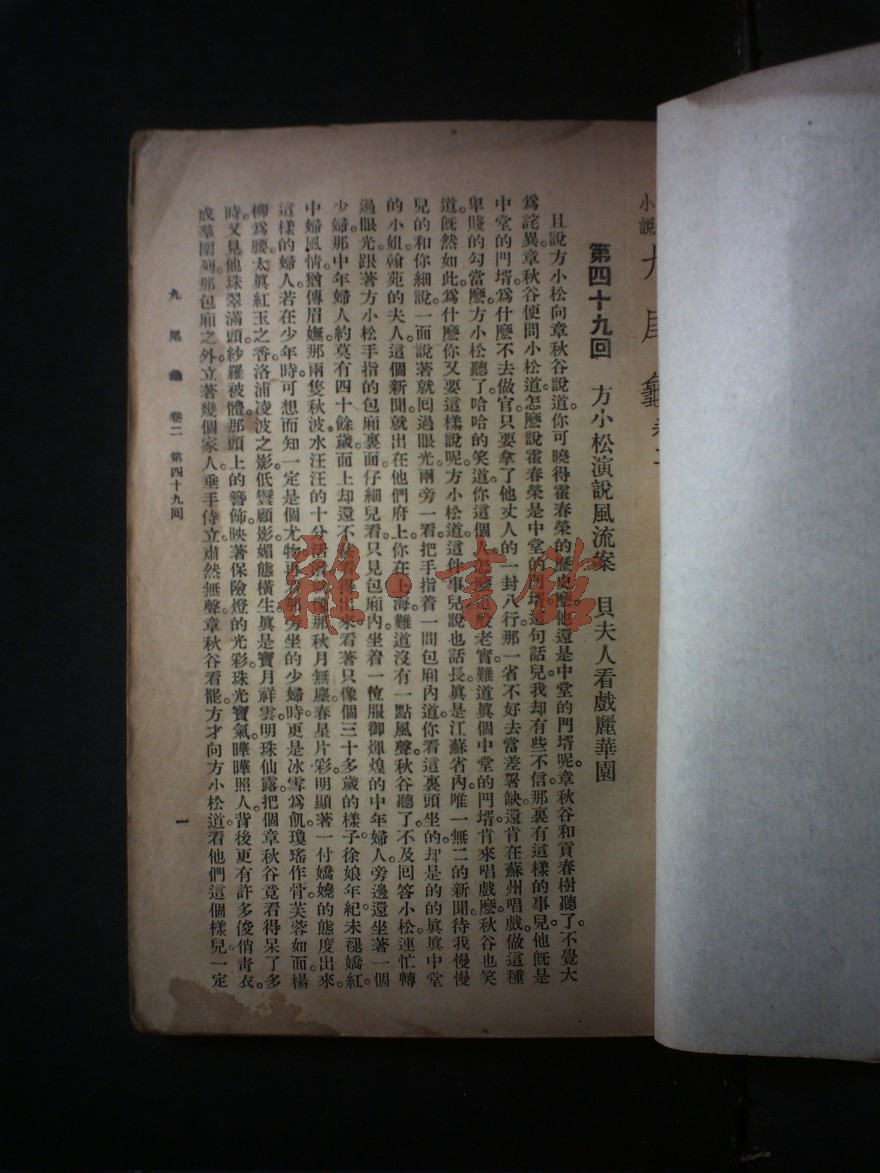 小說九尾龜卷二
第四十九回　方小松演說風流案　貝夫人看戲麗華園
且說方小松向章秋谷說道你可曉得霍春榮的歷史麼他還是中堂的門壻呢章秋谷和貢春樹聽了不覺大
爲詫異章秋谷便問小松道怎麼說霍春榮是中堂的門壻這句話兒我却有些不信那裏有這樣的事兒他旣是
中堂的門壻爲什麼不去做官只要拿了他丈人的一封八行那一省不好去當差署缺還肯在蘇州唱戲做這種
卑賤的勾當麼方小松聽了哈哈的笑道你這個人怎麼這般老實難道眞個中堂的門壻肯來唱戲麼秋谷也笑
道旣然如此爲什麼你又要這樣說呢方小松道這件事兒說也話長眞是江蘇省內唯一無二的新聞待我慢慢
兒的和你細說一面說著就回過眼光兩旁一看把手指着一間包廂內道你看這裏頭坐的却是的的眞眞中堂
的小姐翰苑的夫人這個新聞就出在他們府上你在上海難道沒有一點風聲秋谷聽了不及回答小松連忙轉
過眼光跟著方小松手指的包廂裏面仔細兒看只見包廂內坐着一位服御煇煌的中年婦人旁邊還坐著一個
少婦那中年婦人約莫有四十餘歲面上却還不出來看著只像個三十多歲的樣子徐娘年紀未褪嬌紅
中婦風情猶傳眉嫵那兩隻秋波水汪汪的十分活那秋月無塵春星片彩明顯著一付嬌嬈的態度出來
這樣的婦人若在少年時可想而知一定是個尤物再旁坐的少婦時更是冰雪爲肌瓊瑤作骨芙蓉如面楊
柳爲腰太眞紅玉之香洛浦凌波之影低鬟顧影媚態橫生眞是寶月祥雲明珠仙露把個章秋谷竟看得呆了多
時又見他珠翠滿頭紗羅被體那頭上的簪飾映著保險燈的光彩珠光寶氣曄曄照人背後更有許多俊俏靑衣
成羣圍列那包廂之外立著幾個家人垂手侍立肅然無聲章秋谷看罷方才向方小松道看他們這個樣兒一定
九尾龜　卷二　第四十九回　一
雜·書館